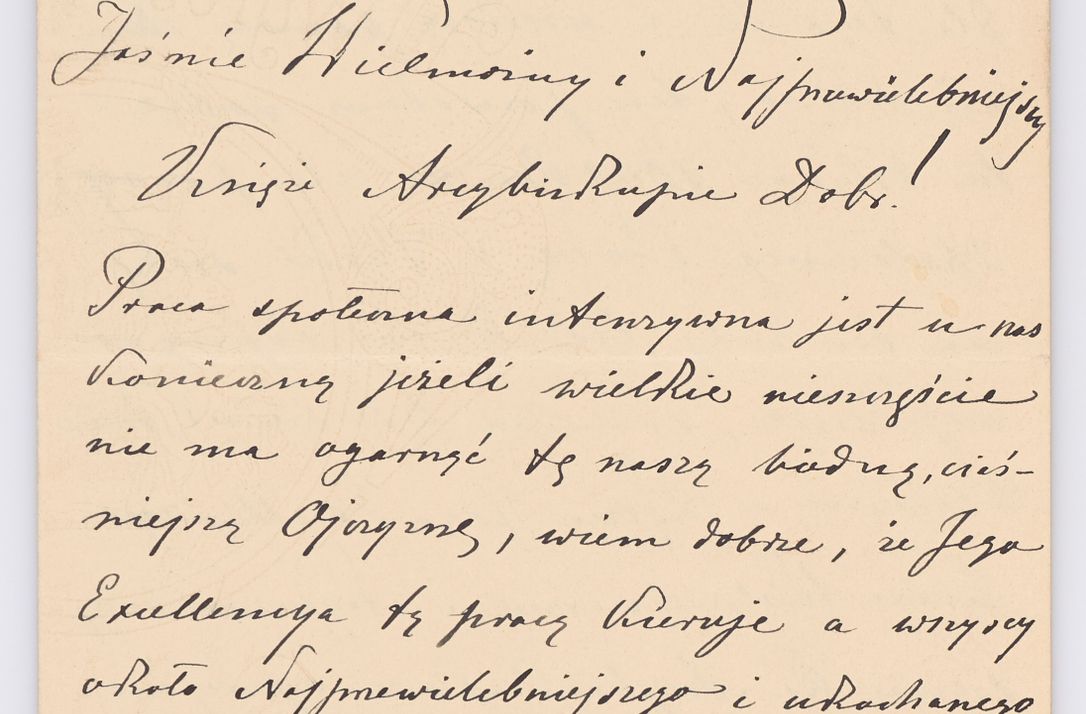 Jaśnie Wielmożny i Najprzewielebniejszy
Księże Arcybiskupie Dobr.!
Praca społeczna intenzywna jest u nas
konieczną jeżeli wielkie nieszczęście
nie ma ogarnąć tę naszą biedną, cieś-
niejszą Ojczyznę, wiem dobrze, że Jego
Excellencya tą pracą kieruje a wszyscy
około Najprzewielebniejszego i ukochanego